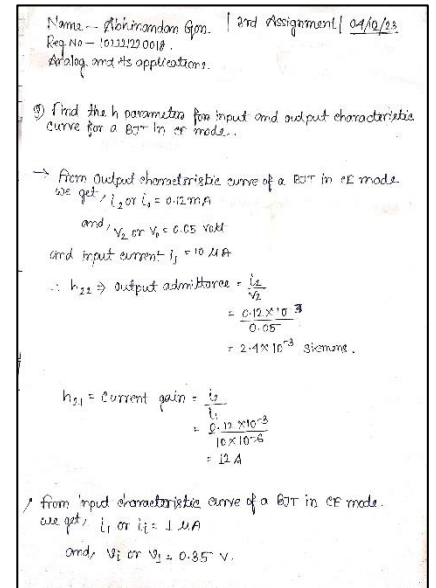 Name - Abhinandan Gon. | 2nd Assignment | 04/10/23
Reg No -
Analog and its applications.
Q) Find the h parameters for input and output characteristic
curve for a BJT in CE mode..
→ From Output characteristic curve of a BJT in CE mode
we get, i₂ or i₀ = 0.12 mA
and, V₂ or V₀ = 0.05 volt
and input current i₁ = 10 μA
∴ h₂₂ ⇒ output admittance = i₂/V₂
= 0.12 × 10⁻³/0.05
= 2.4 × 10⁻³ Siemens.
h₂₁ = Current gain = i₂/i₁
= 0.12 × 10⁻³/10 × 10⁻⁶
= 12 A
from input characteristic curve of a BJT in CE mode.
we get, i₁ or iᵢ = 1 μA
and, Vᵢ or V₁ = 0.35 V.